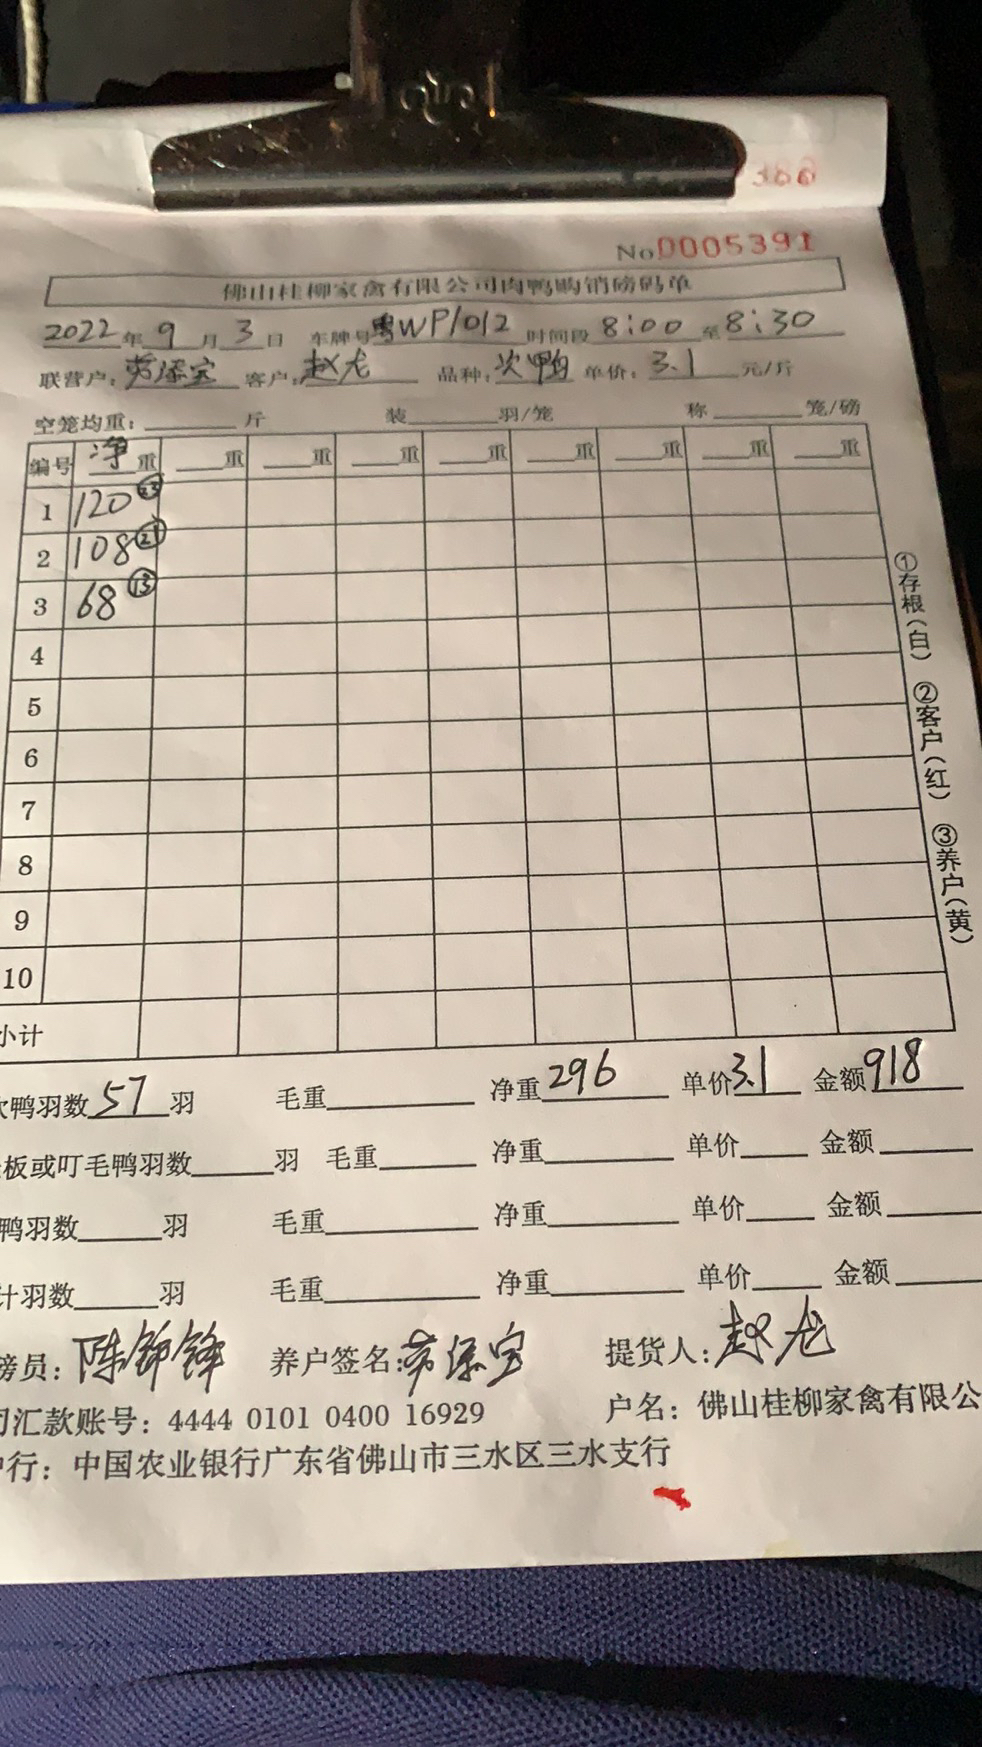 386
No 0005391
佛山桂柳家禽有限公司肉鸭购销磅码单
2022年9月3日 车牌号粤WP1012 时间段8:00至8:30
联营户: 客户:赵龙 品种:次鸭 单价:3.1元/斤
空笼均重:____斤 装____羽/笼 称____笼/磅
编号 净重 __重 __重 __重 __重 __重 __重 __重 __重
1 120 23
2 108 21
3 68 13
4
5
6
7
8
9
10
小计
①存根(白) ②客户(红) ③养户(黄)
次鸭羽数57羽 毛重____ 净重296 单价3.1 金额918
板或叮毛鸭羽数____羽 毛重____ 净重____ 单价____ 金额____
鸭羽数____羽 毛重____ 净重____ 单价____ 金额____
计羽数____羽 毛重____ 净重____ 单价____ 金额____
磅员:陈锦锋 养户签名: 提货人:赵龙
司汇款账号:4444 0101 0400 16929 户名:佛山桂柳家禽有限公
行:中国农业银行广东省佛山市三水区三水支行